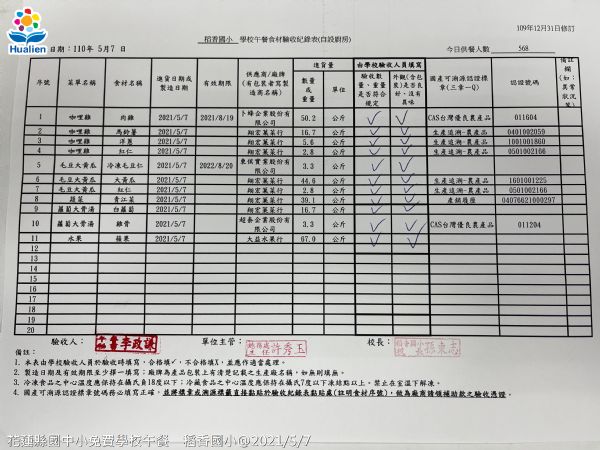 Hualien
109年12月31日修訂
稻香國小 學校午餐食材驗收紀錄表(自設廚房)
日期：110年 5月7日 今日供餐人數 568
序號 菜單名稱 食材名稱 進貨日期或製造日期 有效期限 供應商/廠牌(有包裝者寫製造商名稱) 進貨量 數量或重量 單位 由學校驗收人員填寫 驗收數量、重量是否符合規定 外觀(含包裝)是否良好、沒有異味 國產可溯源認證標章(三章一Q) 認證號碼 備註欄(如:異常狀況等)
1 咖哩雞 肉雞 2021/5/7 2021/8/19 卜蜂企業股份有限公司 50.2 公斤 ✓ ✓ CAS台灣優良農產品 011604
2 咖哩雞 馬鈴薯 2021/5/7 翔宏蔬菜行 16.7 公斤 ✓ ✓ 生產追溯-農產品 0401002059
3 咖哩雞 洋蔥 2021/5/7 翔宏蔬菜行 5.6 公斤 ✓ ✓ 生產追溯-農產品 1001001860
4 咖哩雞 紅仁 2021/5/7 翔宏蔬菜行 2.8 公斤 ✓ ✓ 生產追溯-農產品 0501002166
5 毛豆大黃瓜 冷凍毛豆仁 2021/5/7 2022/8/20 股份有限公司 3.3 公斤 ✓ ✓
6 毛豆大黃瓜 大黃瓜 2021/5/7 翔宏蔬菜行 44.6 公斤 ✓ ✓ 生產追溯-農產品 1601001225
7 毛豆大黃瓜 紅仁 2021/5/7 翔宏蔬菜行 2.8 公斤 ✓ ✓ 生產追溯-農產品 0501002166
8 蔬菜 青江菜 2021/5/7 翔宏蔬菜行 39.1 公斤 ✓ ✓ 產銷履歷 04076621000297
9 蘿蔔大骨湯 白蘿蔔 2021/5/7 翔宏蔬菜行 16.7 公斤 ✓ ✓
10 蘿蔔大骨湯 雞骨 2021/5/7 超秦企業股份有限公司 3.3 公斤 ✓ ✓ CAS台灣優良農產品 011204
11 水果 蘋果 2021/5/7 大益水果行 67.0 公斤 ✓ ✓
12
13
14
15
16
17
18
19
20
驗收人： 單位主管： 許秀玉 校長： 稻香國小校長
備註：
1. 本表由學校驗收人員於驗收時填寫，合格填✓，不合格填X，並應作適當處置。
2. 製造日期及有效期限至少擇一填寫；廠牌為產品包裝上有清楚記載之生產廠名稱，如無則填無。
3. 冷凍食品之中心溫度應保持在攝氏負18度以下；冷藏食品之中心溫度應保持在攝氏7度以下凍結點以上，禁止在室溫下解凍。
4. 國產可溯源認證標章號碼務必填寫正確，並將標章或溯源標籤直接黏貼於驗收紀錄表黏貼處(註明食材序號)，做為廠商請領補助款之驗收憑證。
花蓮縣國中小免費學校午餐 稻香國小@2021/5/7